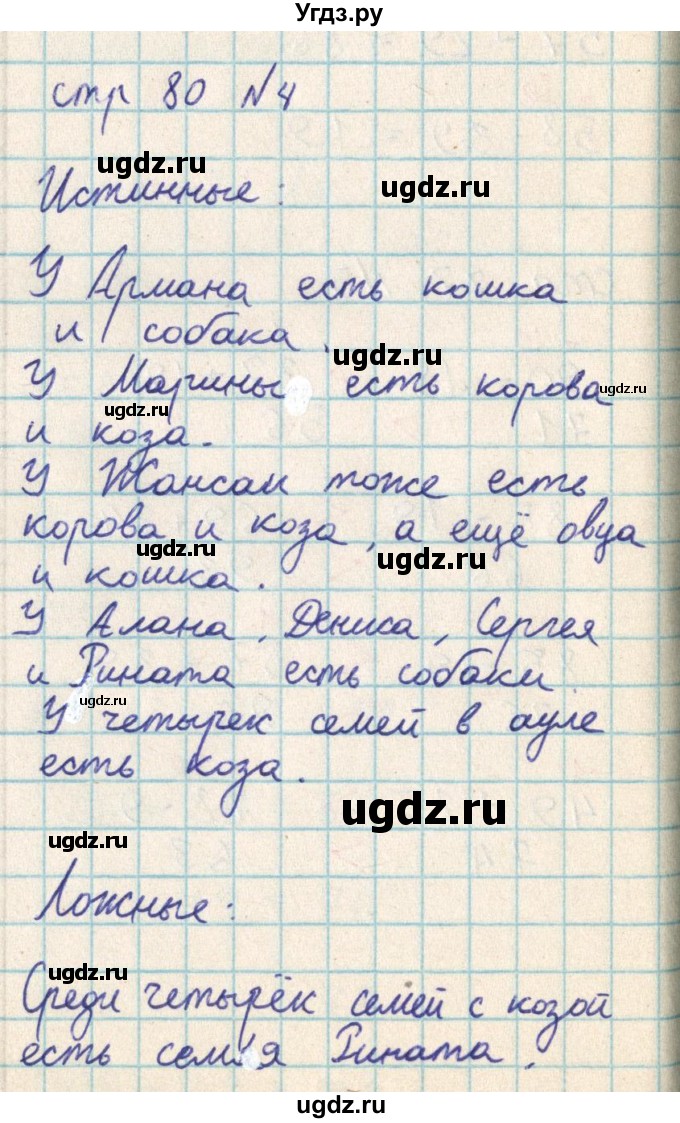 Угдз.ру
стр 80 №4
ugdz.ru
ugdz.ru
Истинные:
У Армана есть кошка
и собака.
ugdz.ru
У Марины есть корова
ugdz.ru
ugdz.ru
и коза.
У Жансаи тоже есть
корова и коза, а ещё овца
ugdz.ru
ugdz.ru
и кошка.
У Алана, Дениса, Сергея
и Рината есть собаки.
ugdz.ru
У четырек семей в ауле
есть коза.
ugdz.ru
ugdz.ru
Ложные:
ugdz.ru
Среди четырёк семей с козой
есть семья Рината.
ugdz.ru